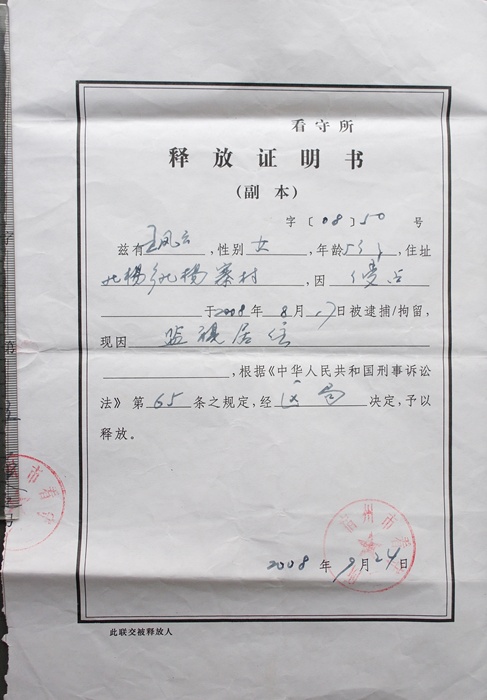 看守所
释放证明书
（副本）
字〔08〕50号
兹有王凤云，性别女，年龄5岁，住址
北杨乡北杨寨村，因侵占
于2008年8月17日被逮捕/拘留，
现因监视居住
，根据《中华人民共和国刑事诉讼
法》第65条之规定，经区局决定，予以
释放。
州市看
2008年9月24日
市看守
此联交被释放人